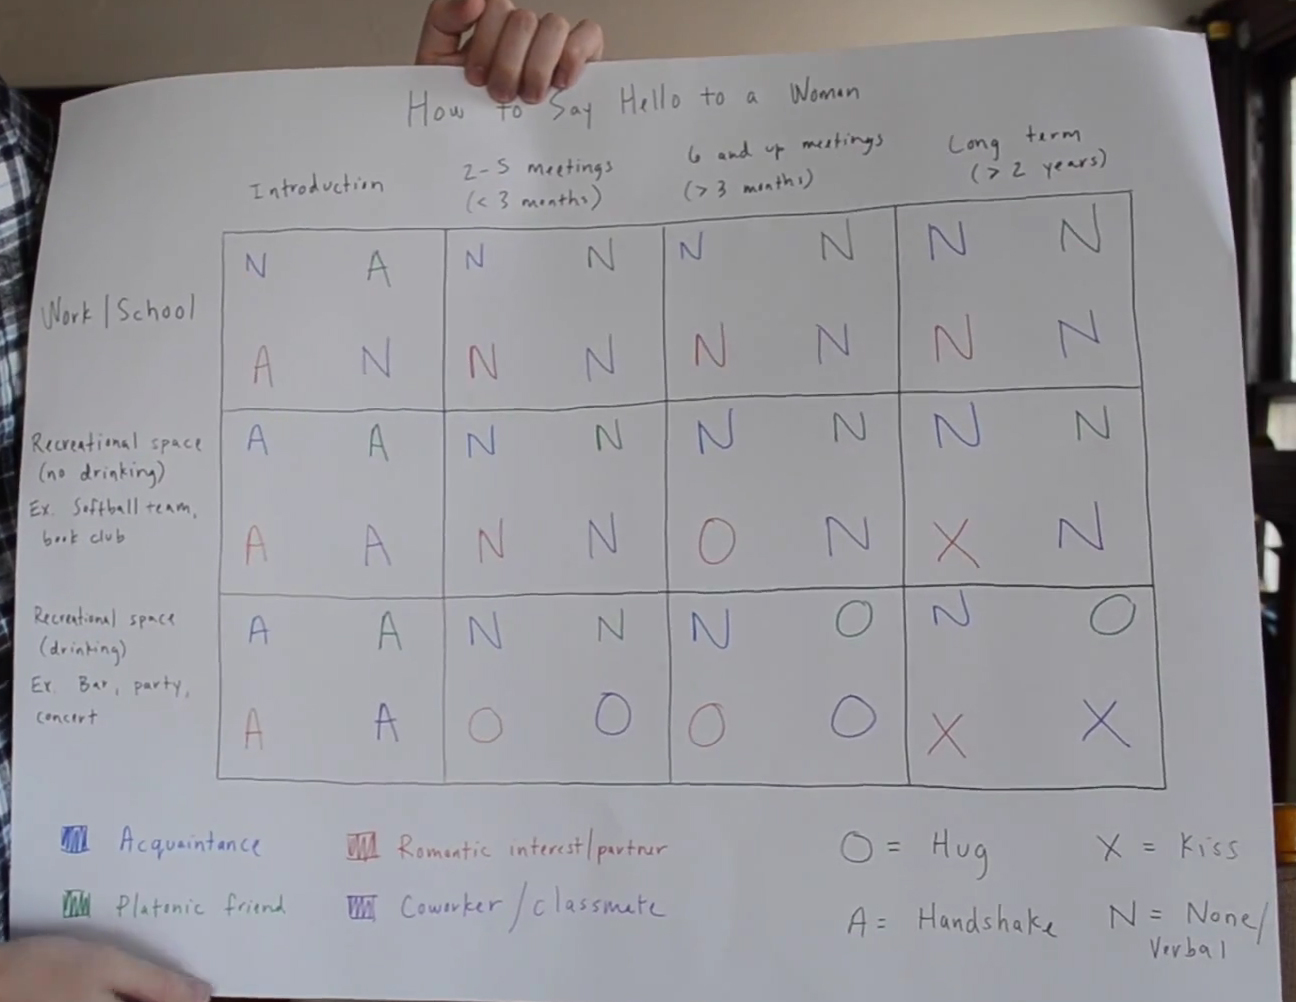 How to Say Hello to a Woman
Introduction
2-5 meetings
(< 3 months)
6 and up meetings
(> 3 months)
Long term
(> 2 years)
Work/School
N A N N N N N N
A N N N N N N N
Recreational space
(no drinking)
Ex. Softball team,
book club
A A N N N N N N
A A N N O N X N
Recreational space
(drinking)
Ex. Bar, party,
concert
A A N N N O N O
A A O O O O X X
Acquaintance
Romantic interest/partner
Platonic friend
Coworker/classmate
O = Hug
X = Kiss
A = Handshake
N = None/
Verbal